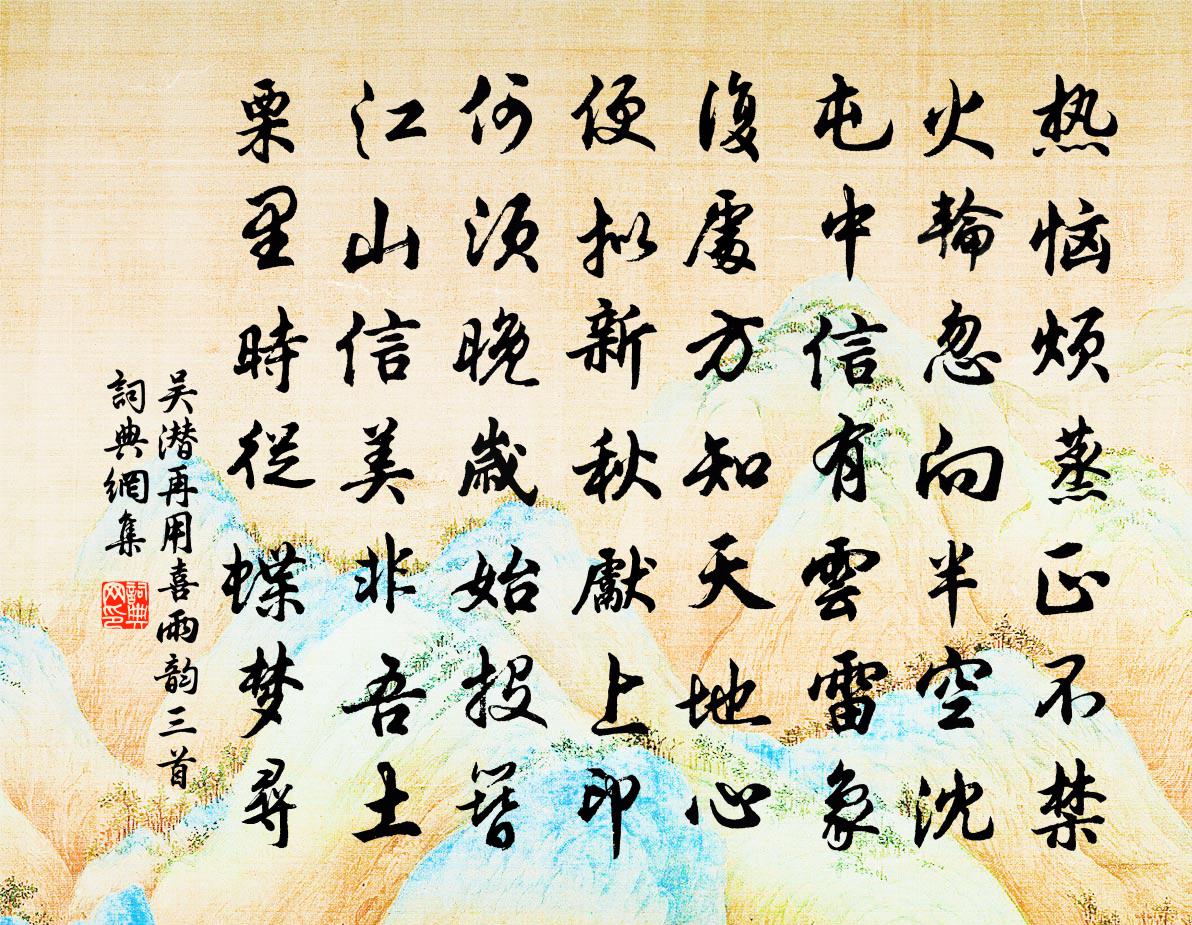 热恼烦蒸正不禁
火輪忽向半空沈
屯中信有雲雷象
復處方知天地心
便拟新秋獻上印
何須晚歲始投簪
江山信美非吾土
栗里時從蝶梦尋
吴潜再用喜雨韵三首
詞典網集
詞典